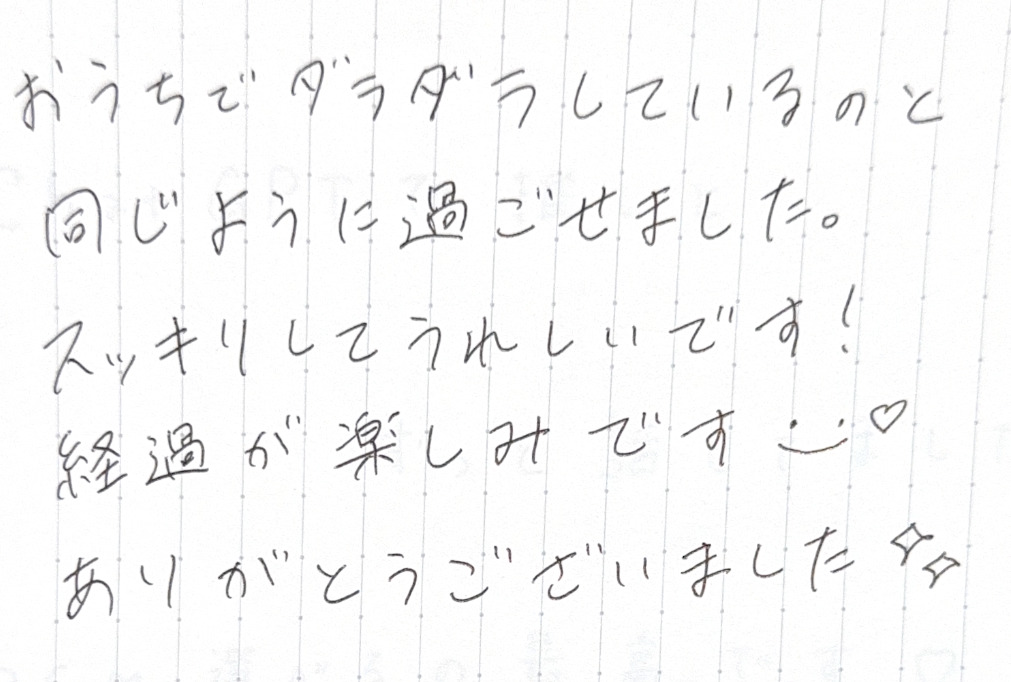 おうちでダラダラしているのと
同じように過ごせました。
スッキリしてうれしいです!
経過が楽しみです ♡
ありがとうございました